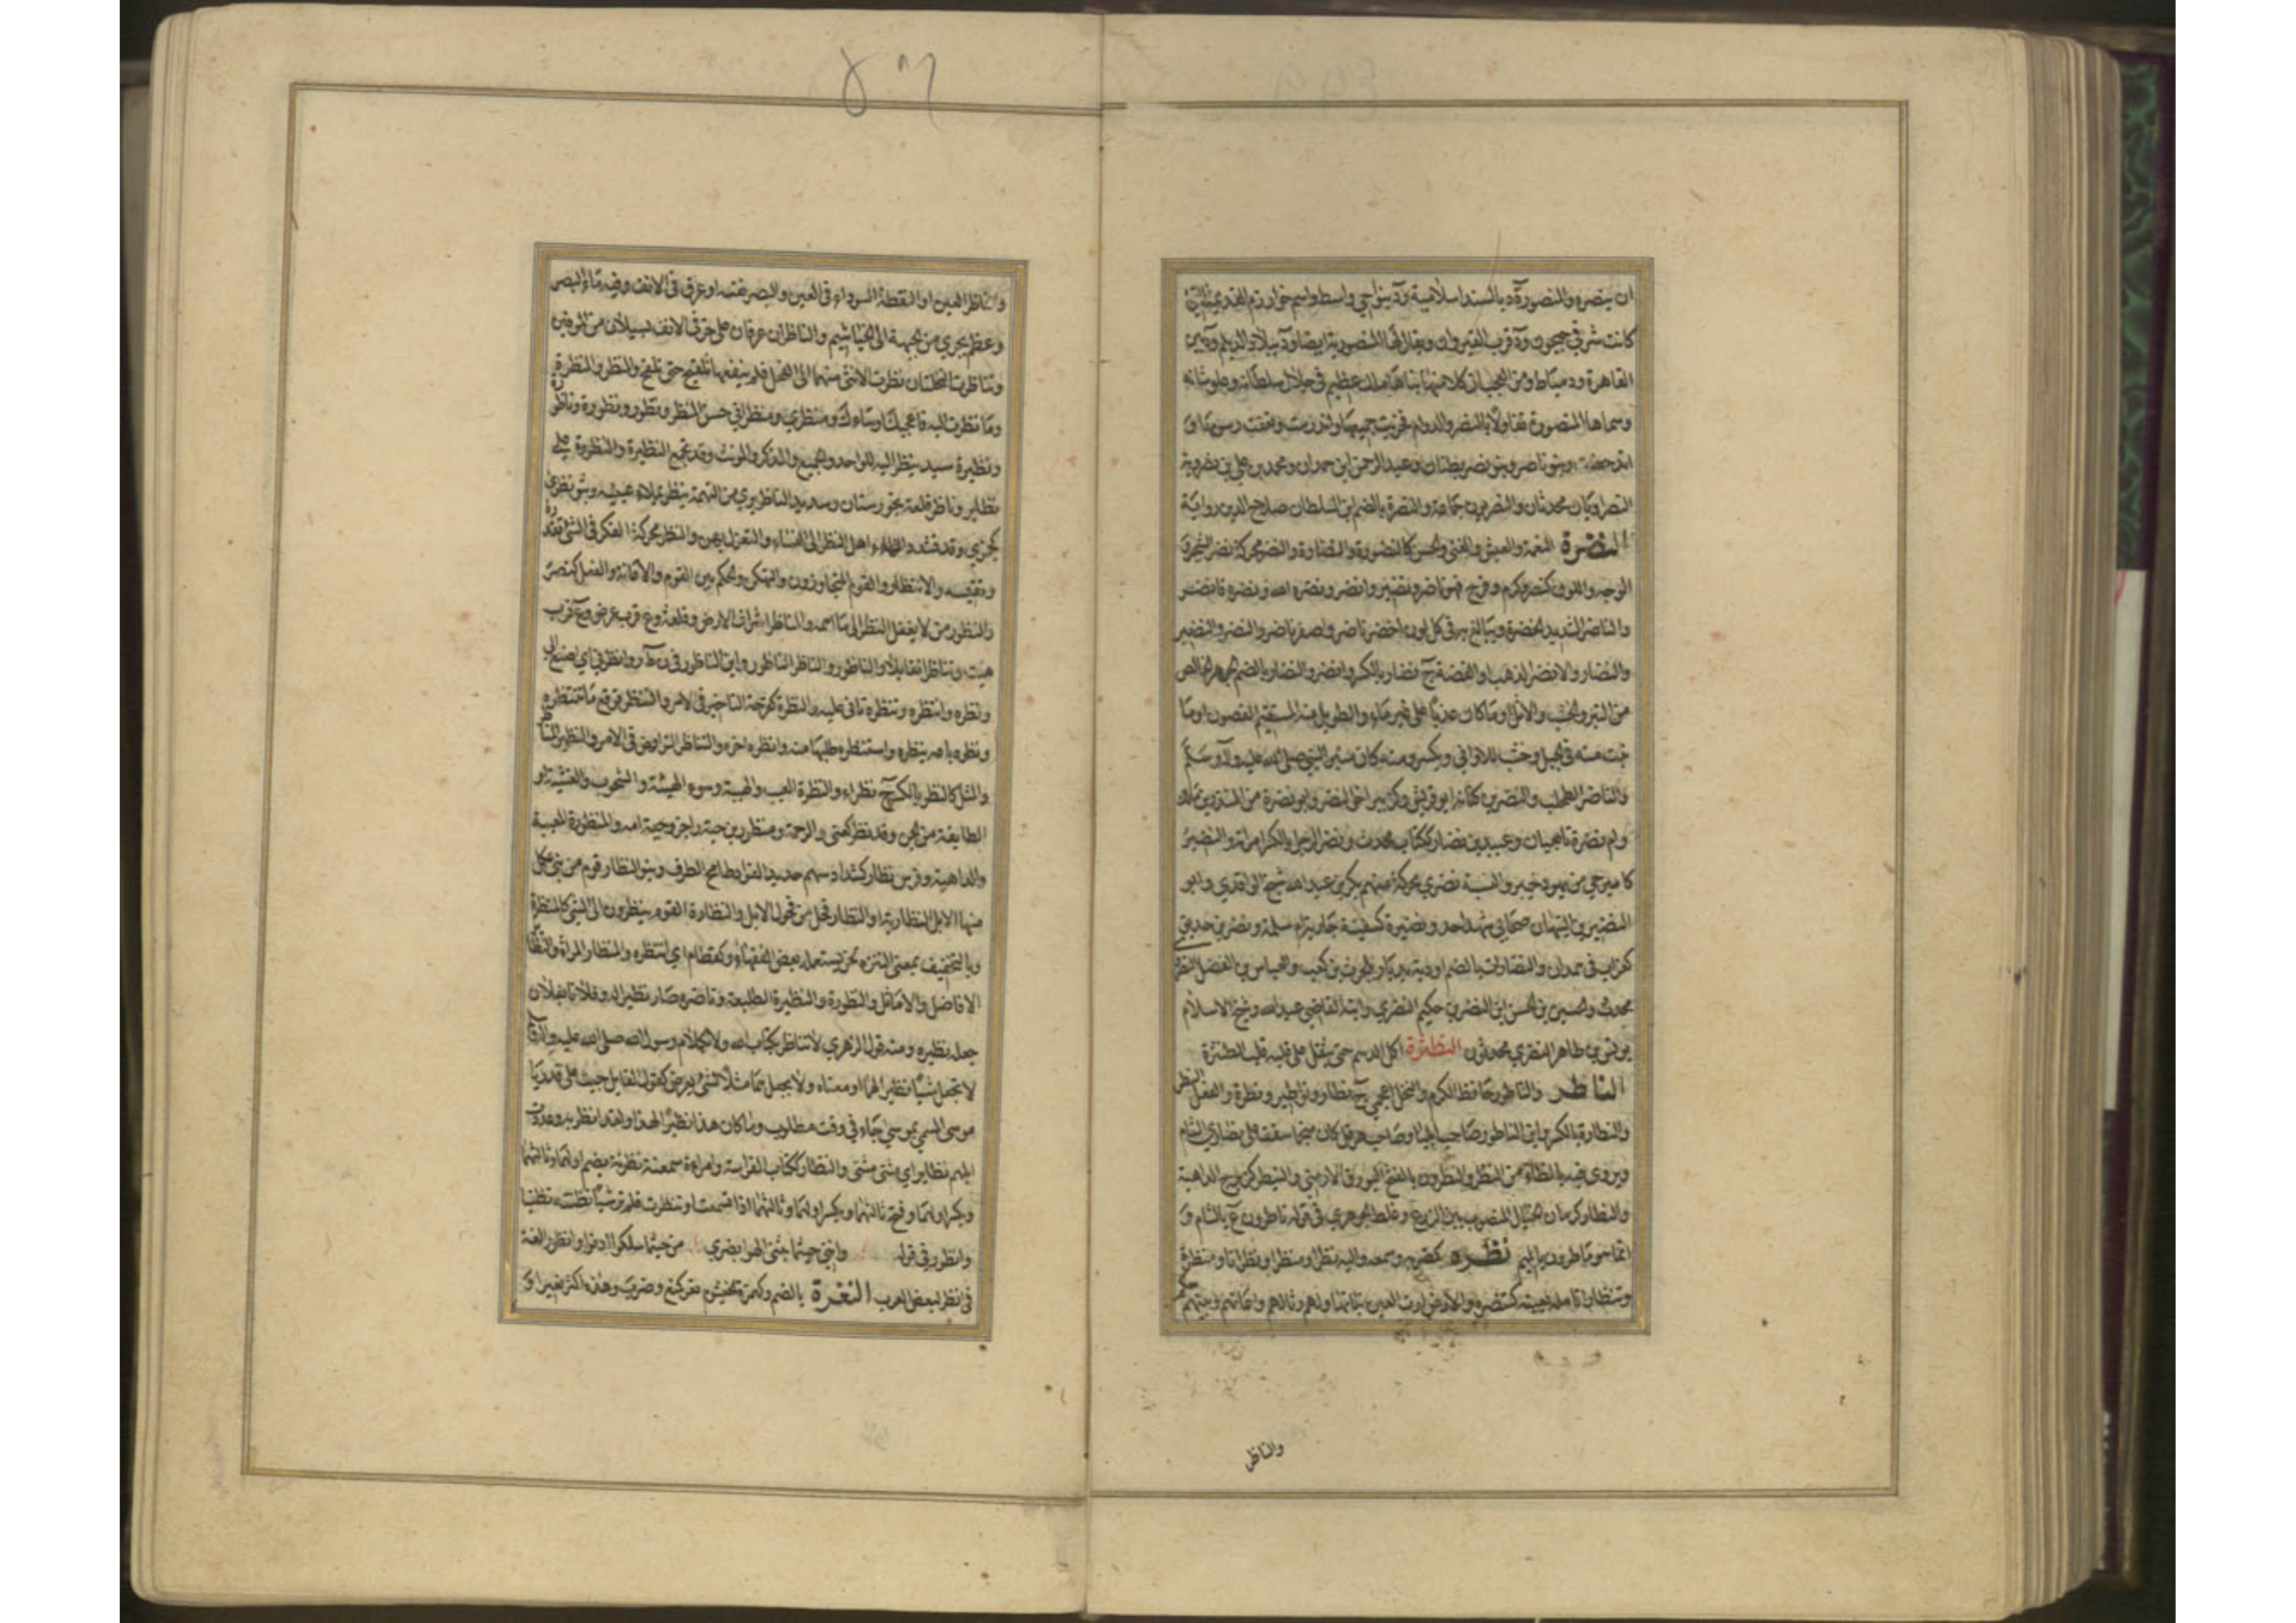 ان ينصره والمنصورة د بالسند اسلامية و د بنواحي واسط واسم خوارزم القديمة التي
كانت شرقي جيحون و د قرب القيروان ويقال لها المنصورية ايضا و د ببلاد الديلم و د بين
القاهرة ودمياط ومن العجب ان كلا منها بناها ملك عظيم في جلال سلطانه وعلو شانه
وسماها المنصورة تفاولا بالنصر والدوام فخربت جميعها واندرست وتعفت رسومها و
اندحضت وبنو ناصر وبنو نصر بطنان وعبد الرحمن ابن حمدان ومحمد بن علي بن نصرويه
النصرويان محدثان والنصريون جماعة والنصرة بالضم ابن السلطان صلاح الدين له رواية
النضرة النعمة والعيش والغنى والحسن كالنضورة والنضارة والنضر محركة نضر الشجر و
الوجه واللون كنصر وكرم وفرح فهو ناضر ونضير وانضر ونضره الله ونضره فانضر
والناضر الشديد الخضرة ويبالغ به في كل لون اخضر ناضر واصفر ناضر والنضر والنضير
والنضار والانضر الذهب او الفضة ج نضار بالكسر وانضر والنضار بالضم الجوهر الخالص
من التبر والخشب والاثل او ما كان عذيا على غير ماء والطويل منه المستقيم الغصون او ما
نبت منه في الجبل وخشب للاواني ويكسر ومنه كان منبر النبي صلى الله عليه وآله وسلم
والناضر الطحلب والنضر بن كنانة ابو قريش وكزبير اخو النضر وابو نضرة من المنذر بن مالك
وام نضرة تابعيان وعبيد بن نضار ككتاب محدث ونضر الرجل بالكسر امرأته والنضير
كامير حي من يهود خيبر والنسبة نضري محركة منهم بكر بن عبد الله شيخ الواقدي وابو
النضير بن التيهان صحابي شهد احد ونضيرة كسفينة جارية ام سلمة ونضر بن حديق
كغراب في همدان والنضارات بالضم اودية بديار بلحرث بن كعب والعباس بن الفضل النضري
محدث والحسين بن الحسن ابن النضر بن حكيم النضري وابنه القاضي عبد الله وشيخ الاسلام
يونس بن طاهر النضري محدثون النطثرة اكل الدسم حتى يثقل على قلبه قلب الطنثرة
الناطر والناطور حافظ الكرم والنخل اعجمي ج نطار ونواطير ونطرة والفعل النطر
والنطارة بالكسر وابن الناطور صاحب ايليا وصاحب هرقل كان منجما سقف على نصارى الشام
ويروى فيه بالظاء من النظر والنطرون بالفتح البورق الارمني والنيطر كزبرج الداهية
والنطار كرمان الخيال المنصوب بين الزرع وغلط الجوهري في قوله ناطرون ع بالشام و
انما هو ماطرون بالميم نظره كضربه وسمعه واليه نظرا ومنظرا ونظرانا ومنظرة
وتنظارا تامله بعينه كتنظره والارض ارت العين نباتها ولهم رثى لهم واعانهم وبينهم حكم
والناظر
والناظر العين او النقطة السوداء في العين والبصر نفسه او عرق في الانف وفيه ماء البصر
وعظم يجري من الجبهة الى الخياشيم والناظران عرقان على حرفي الانف يسيلان من الموقين
وتناظرت النخلتان نظرت الانثى منهما الى الفحل فلم ينفعها تلقيح حتى تلقح والمنظر والمنظرة
وما نظرت اليه فاعجبك او ساءك ومنظري ومنظراني حسن المنظر ونظور ونظورة وناظورة
ونظيرة سيد ينظر اليه للواحد والجميع والمذكر والمونث وقد تجمع النظيرة والنظورة على
نظاير وناظر قلعة بخوزستان وسديد الناظر بري من التهمة ينظر بملاء عينيه وبنو نظري
كجمزى وقد تشدد الظاء اهل النظر الى النساء والتغزل بهن والنظر محركة الفكر في الشي تقدره
وتقيسه والانتظار والقوم المتجاورون والتكهن والحكم بين القوم والاعانة والفعل كنصر
والنظور من لا يغفل النظر الى ما اهمه والمناظر اشراف الارض وقلعة وع قرب عرض وع قرب
هيت وتناظرا تقابلا والناظور والناظر الناطور وابن الناظور في ن ط ر وانظرني اي اصغ الي
ونظره وانتظره وتنظره تانى عليه والنظرة كفرحة التاخير في الامر والتنظر توقع ما تنتظره
ونظره باعه بنظرة واستنظره طلبها منه وانظره اخره والتناظر التراوض في الامر والنظير المناظر
والمثل كالنظر بالكسر ج نظراء والنظرة العيب والهيبة وسوء الهيئة والشحوب والغشية او
الطايفة من الجن وقد نظر كعني والرحمة ومنظور بن حبة راجز وحبة امه والمنظورة المعيبة
والداهية وفرس نظار كشداد شهم حديد الفؤاد طامح الطرف وبنو النظار قوم من بني عكل
منها الابل النظارية او النظار فحل من فحول الابل والنظارة القوم ينظرون الى الشي كالمنظرة
وبالتخفيف بمعنى التنزه لحن يستعمله بعض الفقهاء وكقطام اي انتظر والمنظار المرأة والنظاير
الافاضل والاماثل والنظورة والنظيرة الطليعة وناظره صار نظيرا له وفلانا بفلان
جعله نظيره ومنه قول الزهري لا تناظر بكتاب الله ولا بكلام رسول الله صلى الله عليه وآله اي
لا تجعل شيئا نظيرا لهما او معناه ولا تجعلهما مثلا لشي يعرض كقول القايل جئت على قدر يا
موسى لمسمى بموسى جاء في وقت مطلوب وما كان هذا نظيرا لهذا ولقد انظر به وعددت
ابلهم نظاير اي مثنى مثنى والنظار ككتاب الفراسة وامرأة سمعنة نظرنة بضم اولهما وثالثهما
وبكسر اولهما وفتح ثالثهما وبكسر اولهما وثالثهما اذا تسمعت او تنظرت فلم تر شيئا تظنته تظنيا
وانظور في قوله وانني حيثما يثني الهوى بصري من حيثما سلكوا ادنو فانظور لغة
في انظر لبعض العرب النغرة بالضم وكهمزة الخيشوم نعر كمنع وضرب وهذه اكثر نعيرا و